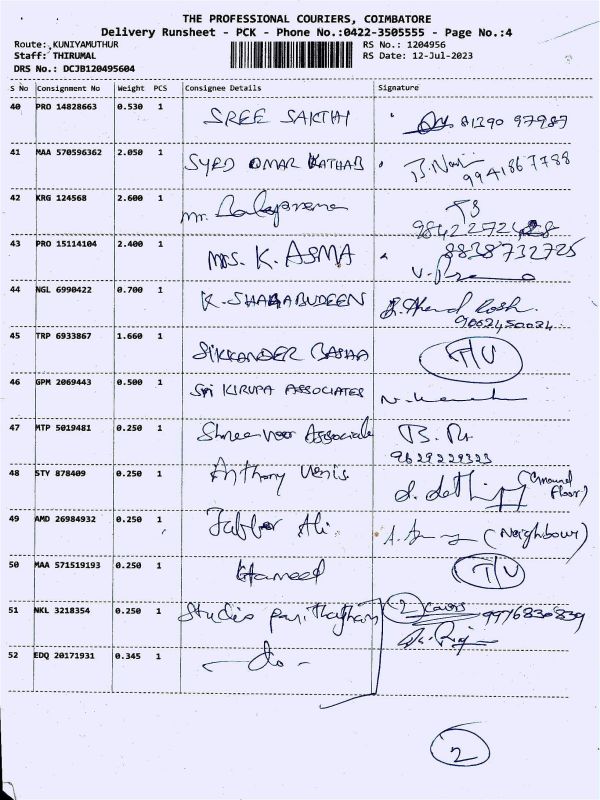 THE PROFESSIONAL COURIERS, COIMBATORE
Delivery Runsheet - PCK - Phone No.:0422-3505555 - Page No.:4
Route: KUNIYAMUTHUR RS No.: 1204956
Staff: THIRUMAL RS Date: 12-Jul-2023
DRS No.: DCJB120495604
S No Consignment No Weight PCS Consignee Details Signature
40 PRO 14828663 0.530 1 SREE SAKTHI 81390 97987
41 MAA 570596362 2.050 1 SYED OMAR KATHAB 9941867788
42 KRG 124568 2.600 1 Mr.
43 PRO 15114104 2.400 1 MRS. K. ASMA 8838732725
44 NGL 6990422 0.700 1 K. SHAHABUDEEN
9062450024
45 TRP 6933867 1.660 1 SIKKANDER BASHA T/U
46 GPM 2069443 0.500 1 SRI KIRUPA ASSOCIATES
47 MTP 5019481 0.250 1 Associate
9629229323
48 STY 878409 0.250 1 Anthony (Ground Floor)
49 AMD 26984932 0.250 1 Jabbar Ali. (Neighbour)
50 MAA 571519193 0.250 1 Hameed T/U
51 NKL 3218354 0.250 1 Studio 2 covers 9976830839
52 EDQ 20171931 0.345 1 - do -
2